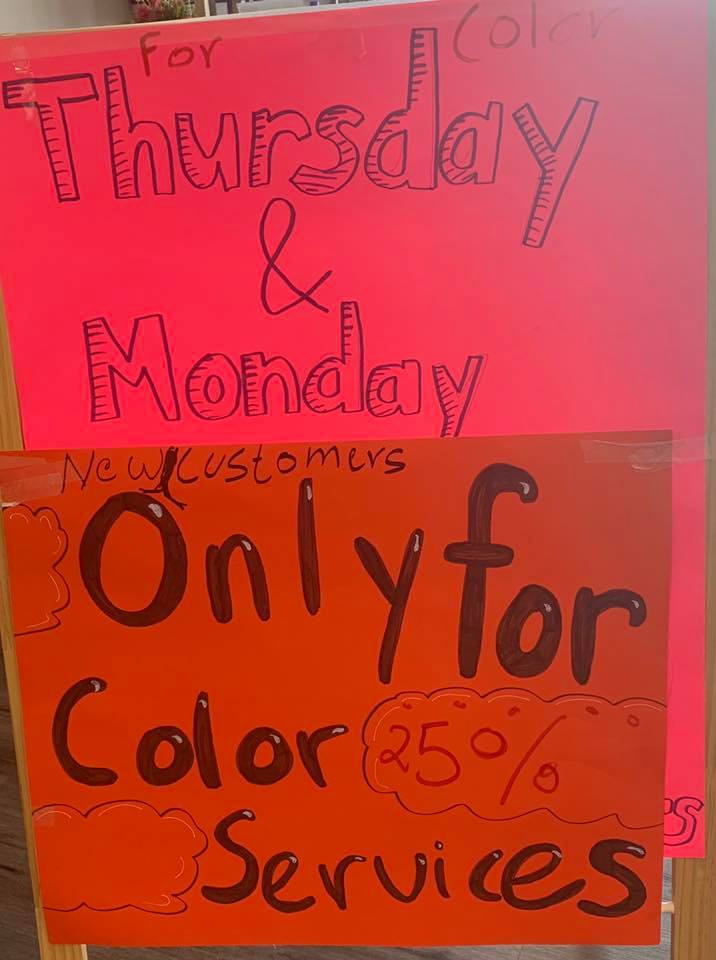 For Color
Thursday
&
Monday
New Customers
Only for
Color 25%
Services